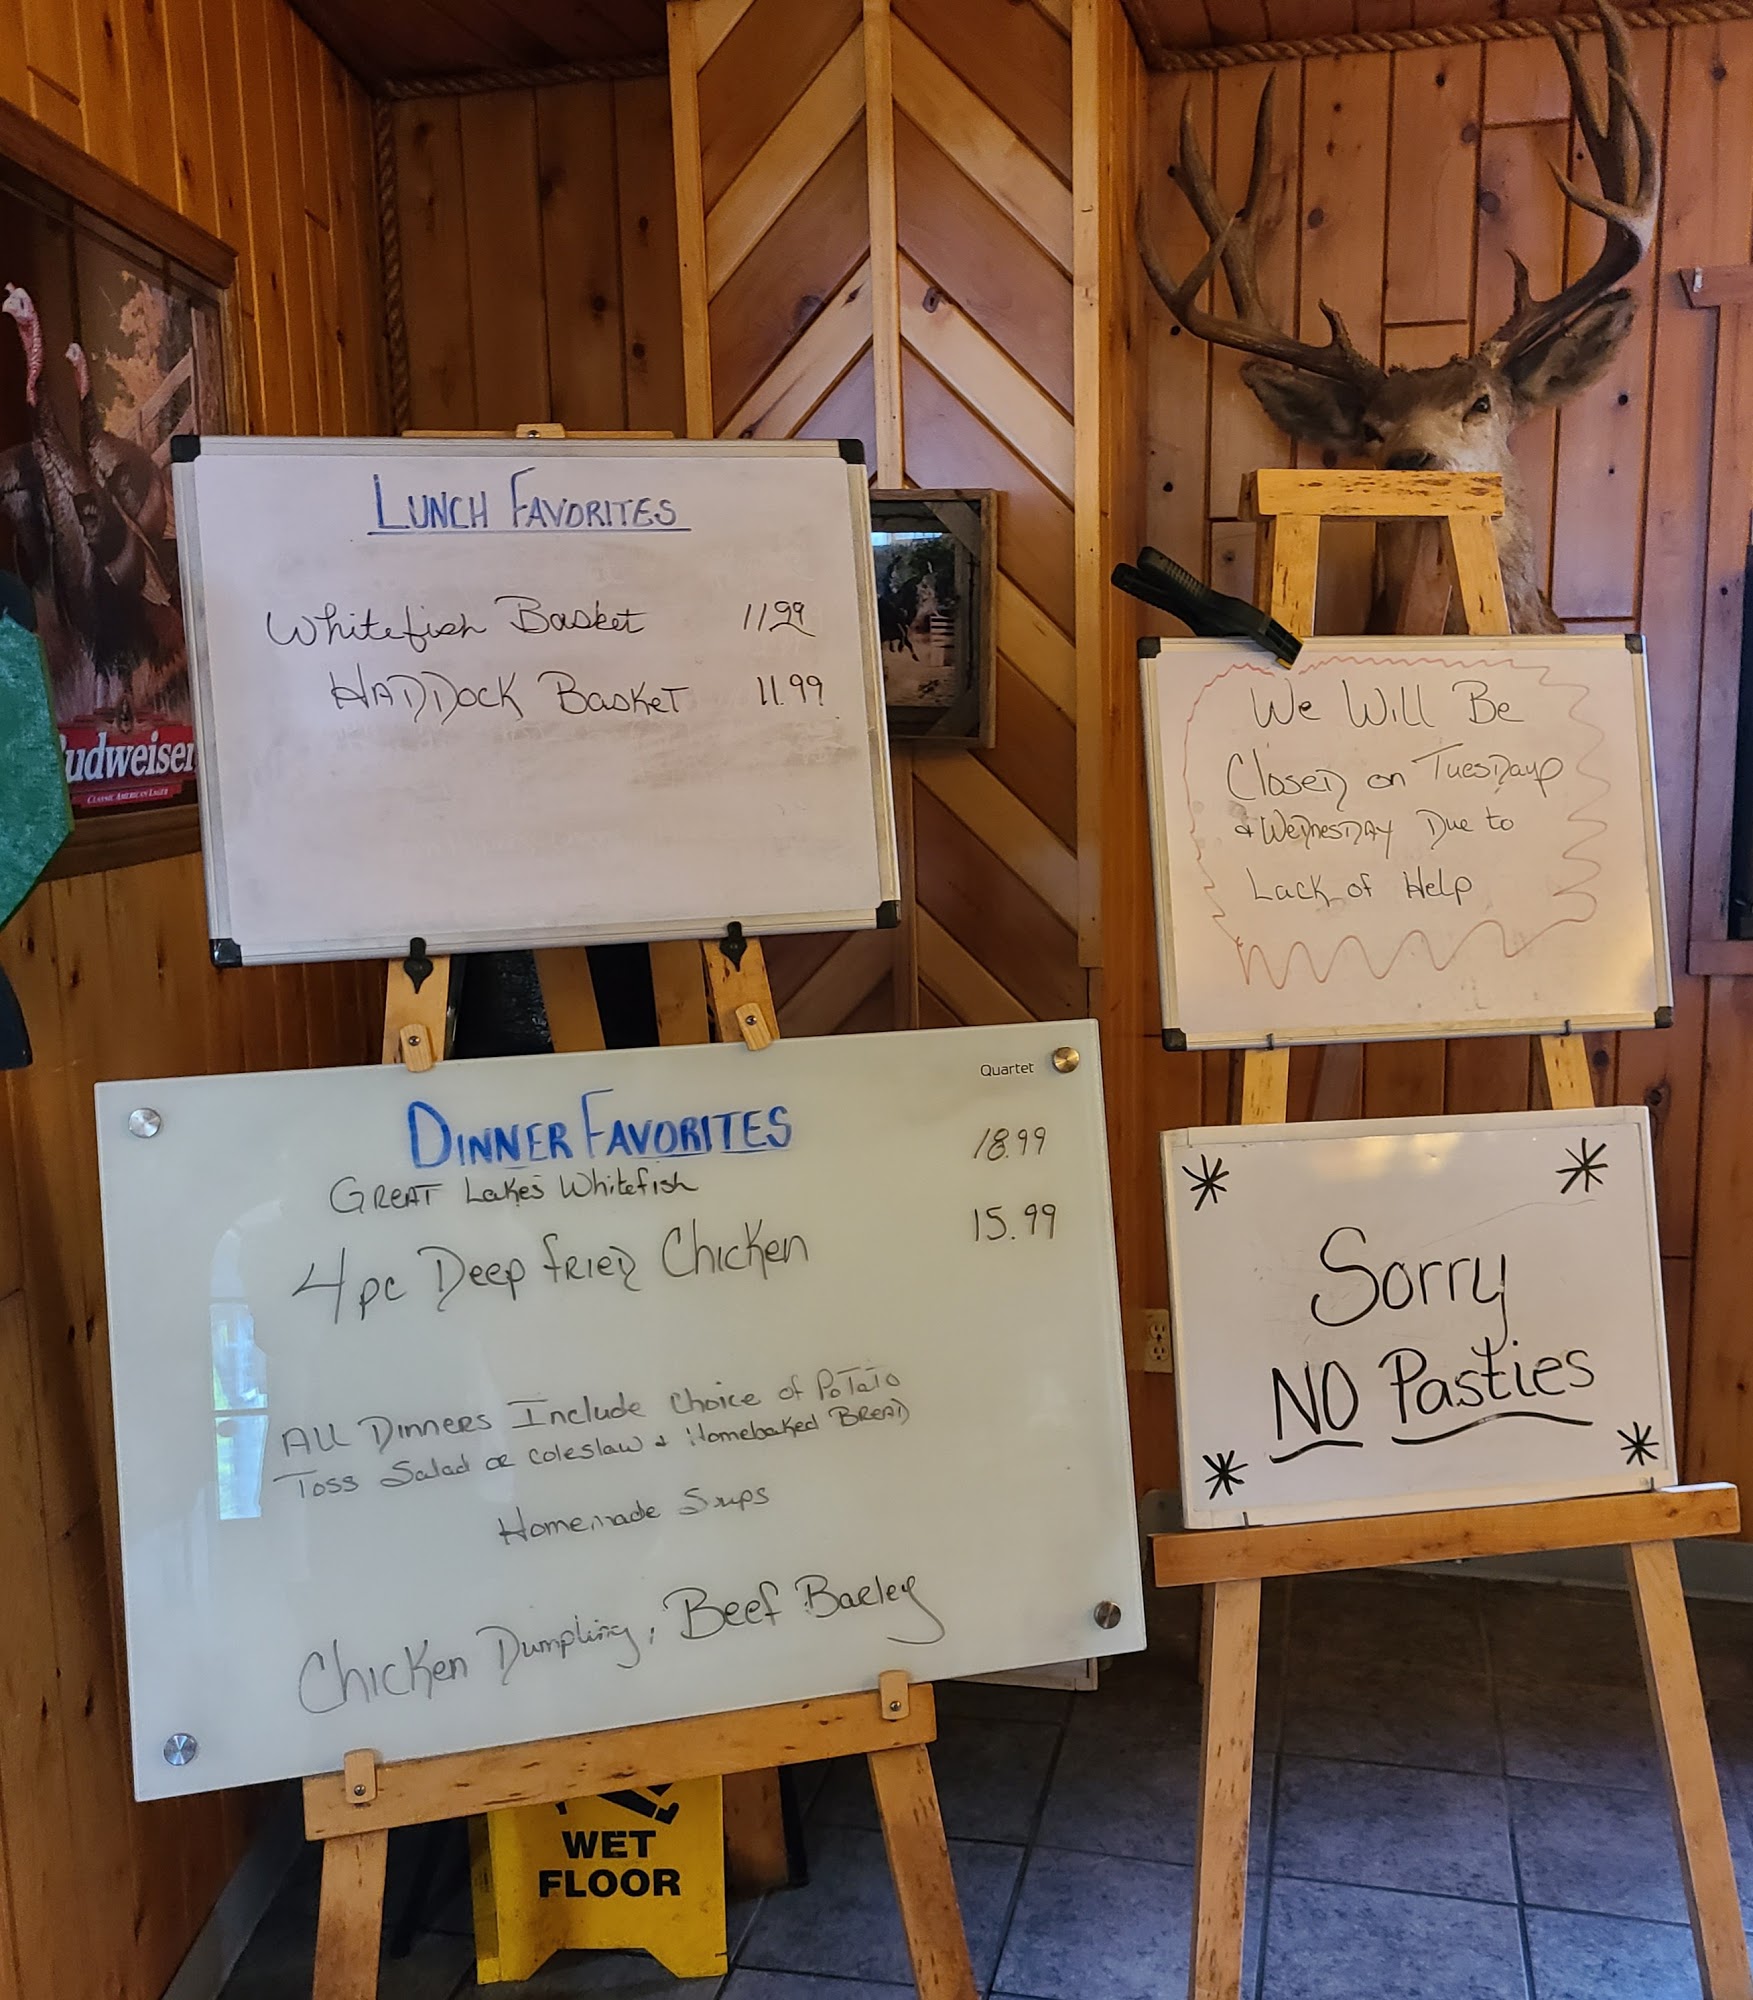 LUNCH FAVORITES
Whitefish Basket 11.99
HADDOCK BASKET 11.99
udweiser
CLASSIC AMERICAN LAGER
We Will Be
Closed on Tuesday
& WEDNESDAY Due to
Lack of Help
Quartet
DINNER FAVORITES
GREAT Lakes Whitefish 18.99
4pc Deep frieD Chicken 15.99
ALL DINNERS Include Choice of PoTaTo
Toss Salad or Coleslaw & Homebaked BREAD
Homemade Soups
Chicken Dumpling, Beef Barley
Sorry
NO Pasties
WET
FLOOR